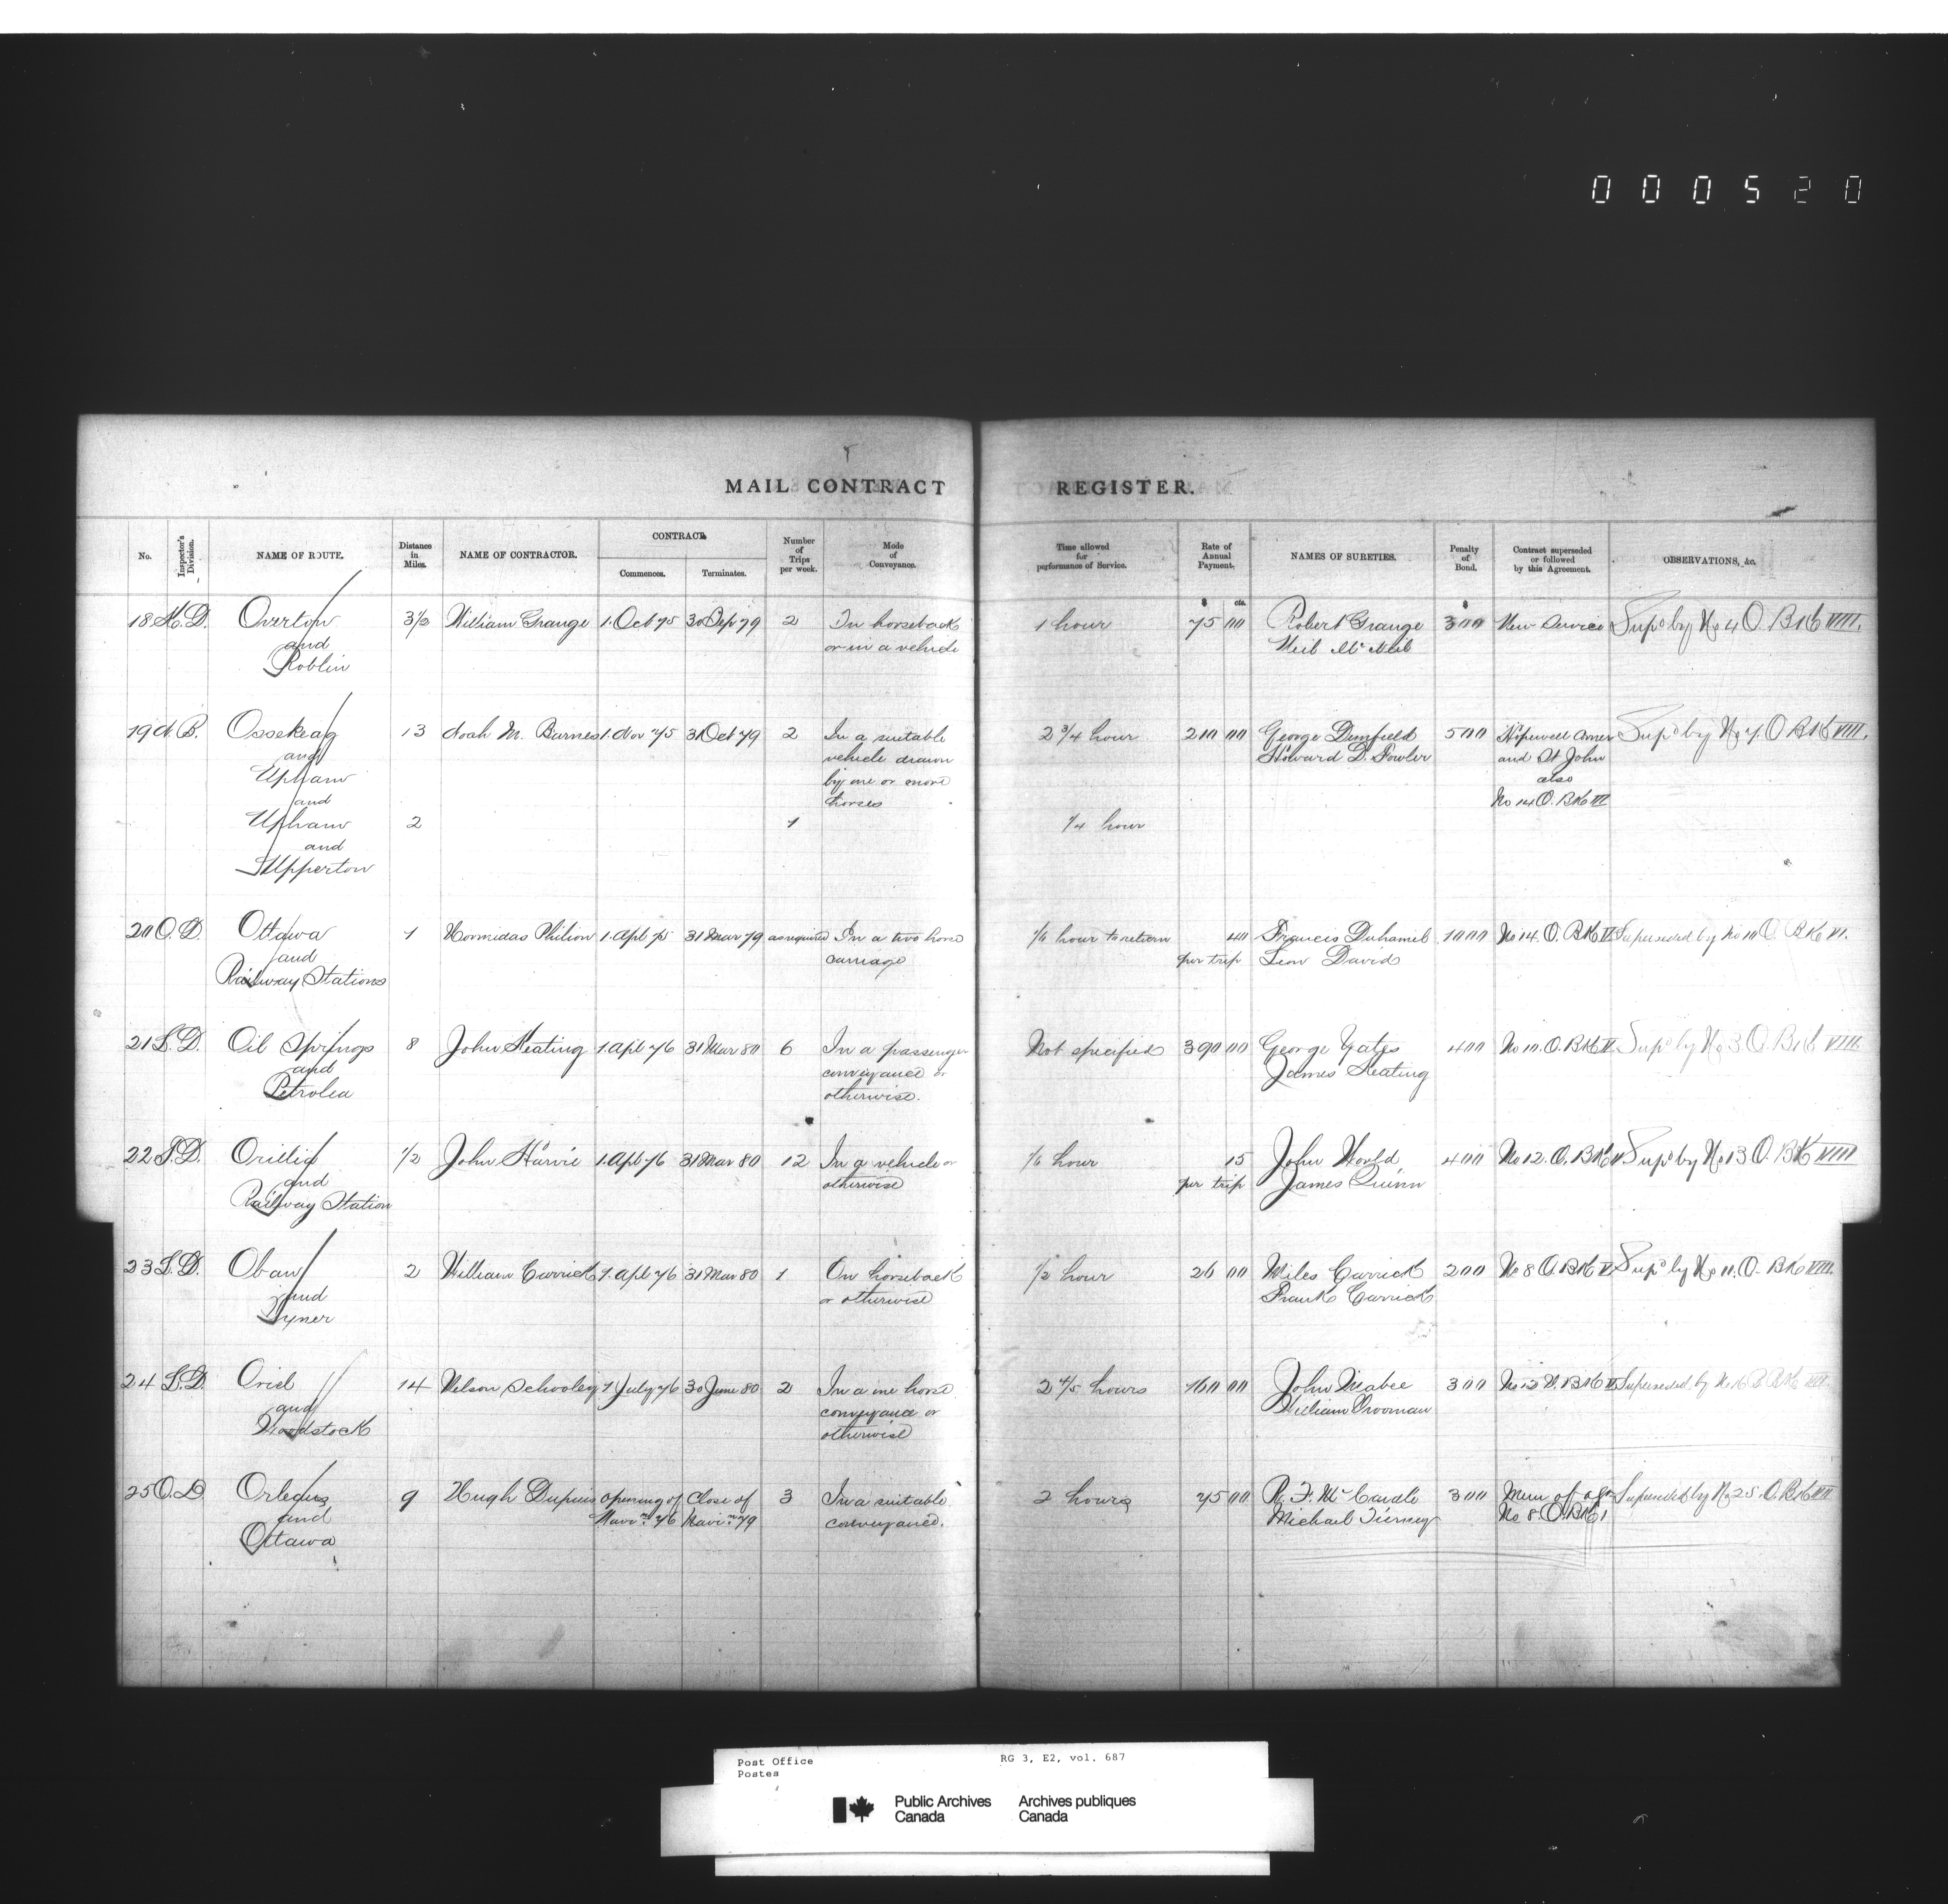 000520
MAIL CONTRACT REGISTER.
No. Inspector's Division. NAME OF ROUTE. Distance in Miles. NAME OF CONTRACTOR. CONTRACT Commences. Terminates. Number of Trips per week. Mode of Conveyance. Time allowed for performance of Service. Rate of Annual Payment. NAMES OF SURETIES. Penalty of Bond. Contract superseded or followed by this Agreement. OBSERVATIONS, &c.
$ cts. $
18 K.D. Overton 3½ William Grange 1.Oct 75 30 Sep 79 2 On horseback 1 hour 75 00 Robert Grange 300 New Service Supd by No 4 O. BK VIII.
and or in a vehicle Neil McNeil
Roblin
19 N.B. Ossekeag 13 Noah M. Barnes 1.Nov 75 31 Oct 79 2 In a suitable 2 3/4 hour 210 00 George Dumfield 500 Hopewell Corner Supd by No 7. O BK VIII.
and vehicle drawn Howard D. Fowler and St John
Upham by one or more also
and horses No 14 O. BK VI
Upham 2 1 1/4 hour
and
Upperton
20 O.D. Ottawa 1 Hormidas Philion 1.Apl 75 31 Mar 79 as required In a two horse 1/6 hour to return 40 Francis Duhamel 1000 No 14. O. BK V Superseded by No 10 O. BK VI.
and carriage per trip Leon David
Railway Stations
21 L.D. Oil Springs 8 John Keating 1.Apl 76 31 Mar 80 6 In a passenger Not specified 390 00 George Yates 400 No 10. O. BK V. Supd by No 3 O. BK VIII.
and conveyance or James Keating
Petrolea otherwise.
22 T.D. Orillia 1/2 John Harvie 1.Apl 76 31 Mar 80 12 In a vehicle or 1/6 hour 15 John 400 No 12. O. BK V Supd by No 13 O. BK VIII
and otherwise per trip James Quinn
Railway Station
23 L.D. Oban 2 William Carrick 1.Apl 76 31 Mar 80 1 On horseback 1/2 hour 26 00 Miles Carrick 200 No 8 O. BK V Supd by No 11. O. BK VIII.
and or otherwise Frank Carrick
Vyner
24 L.D. Oriel 14 Nelson Schooley 1 July 76 30 June 80 2 In a one horse 2 4/5 hours 160 00 John Mabee 300 No 12 O. BK V Superseded by No 16 O. BK VII.
and conveyance or William Vrooman
Woodstock otherwise
25 O.D. Orleans 9 Hugh Dupuis opening of Close of 3 In a suitable 2 hours 75 00 R. F. McCardle 300 Mem of agr Superseded by No 25. O. BK VII
and Navin. 76 Navin. 79 conveyance. Michael Tierney No 8 O. BK 1
Ottawa
Post Office RG 3, E2, vol. 687
Postes
Public Archives Archives publiques
Canada Canada